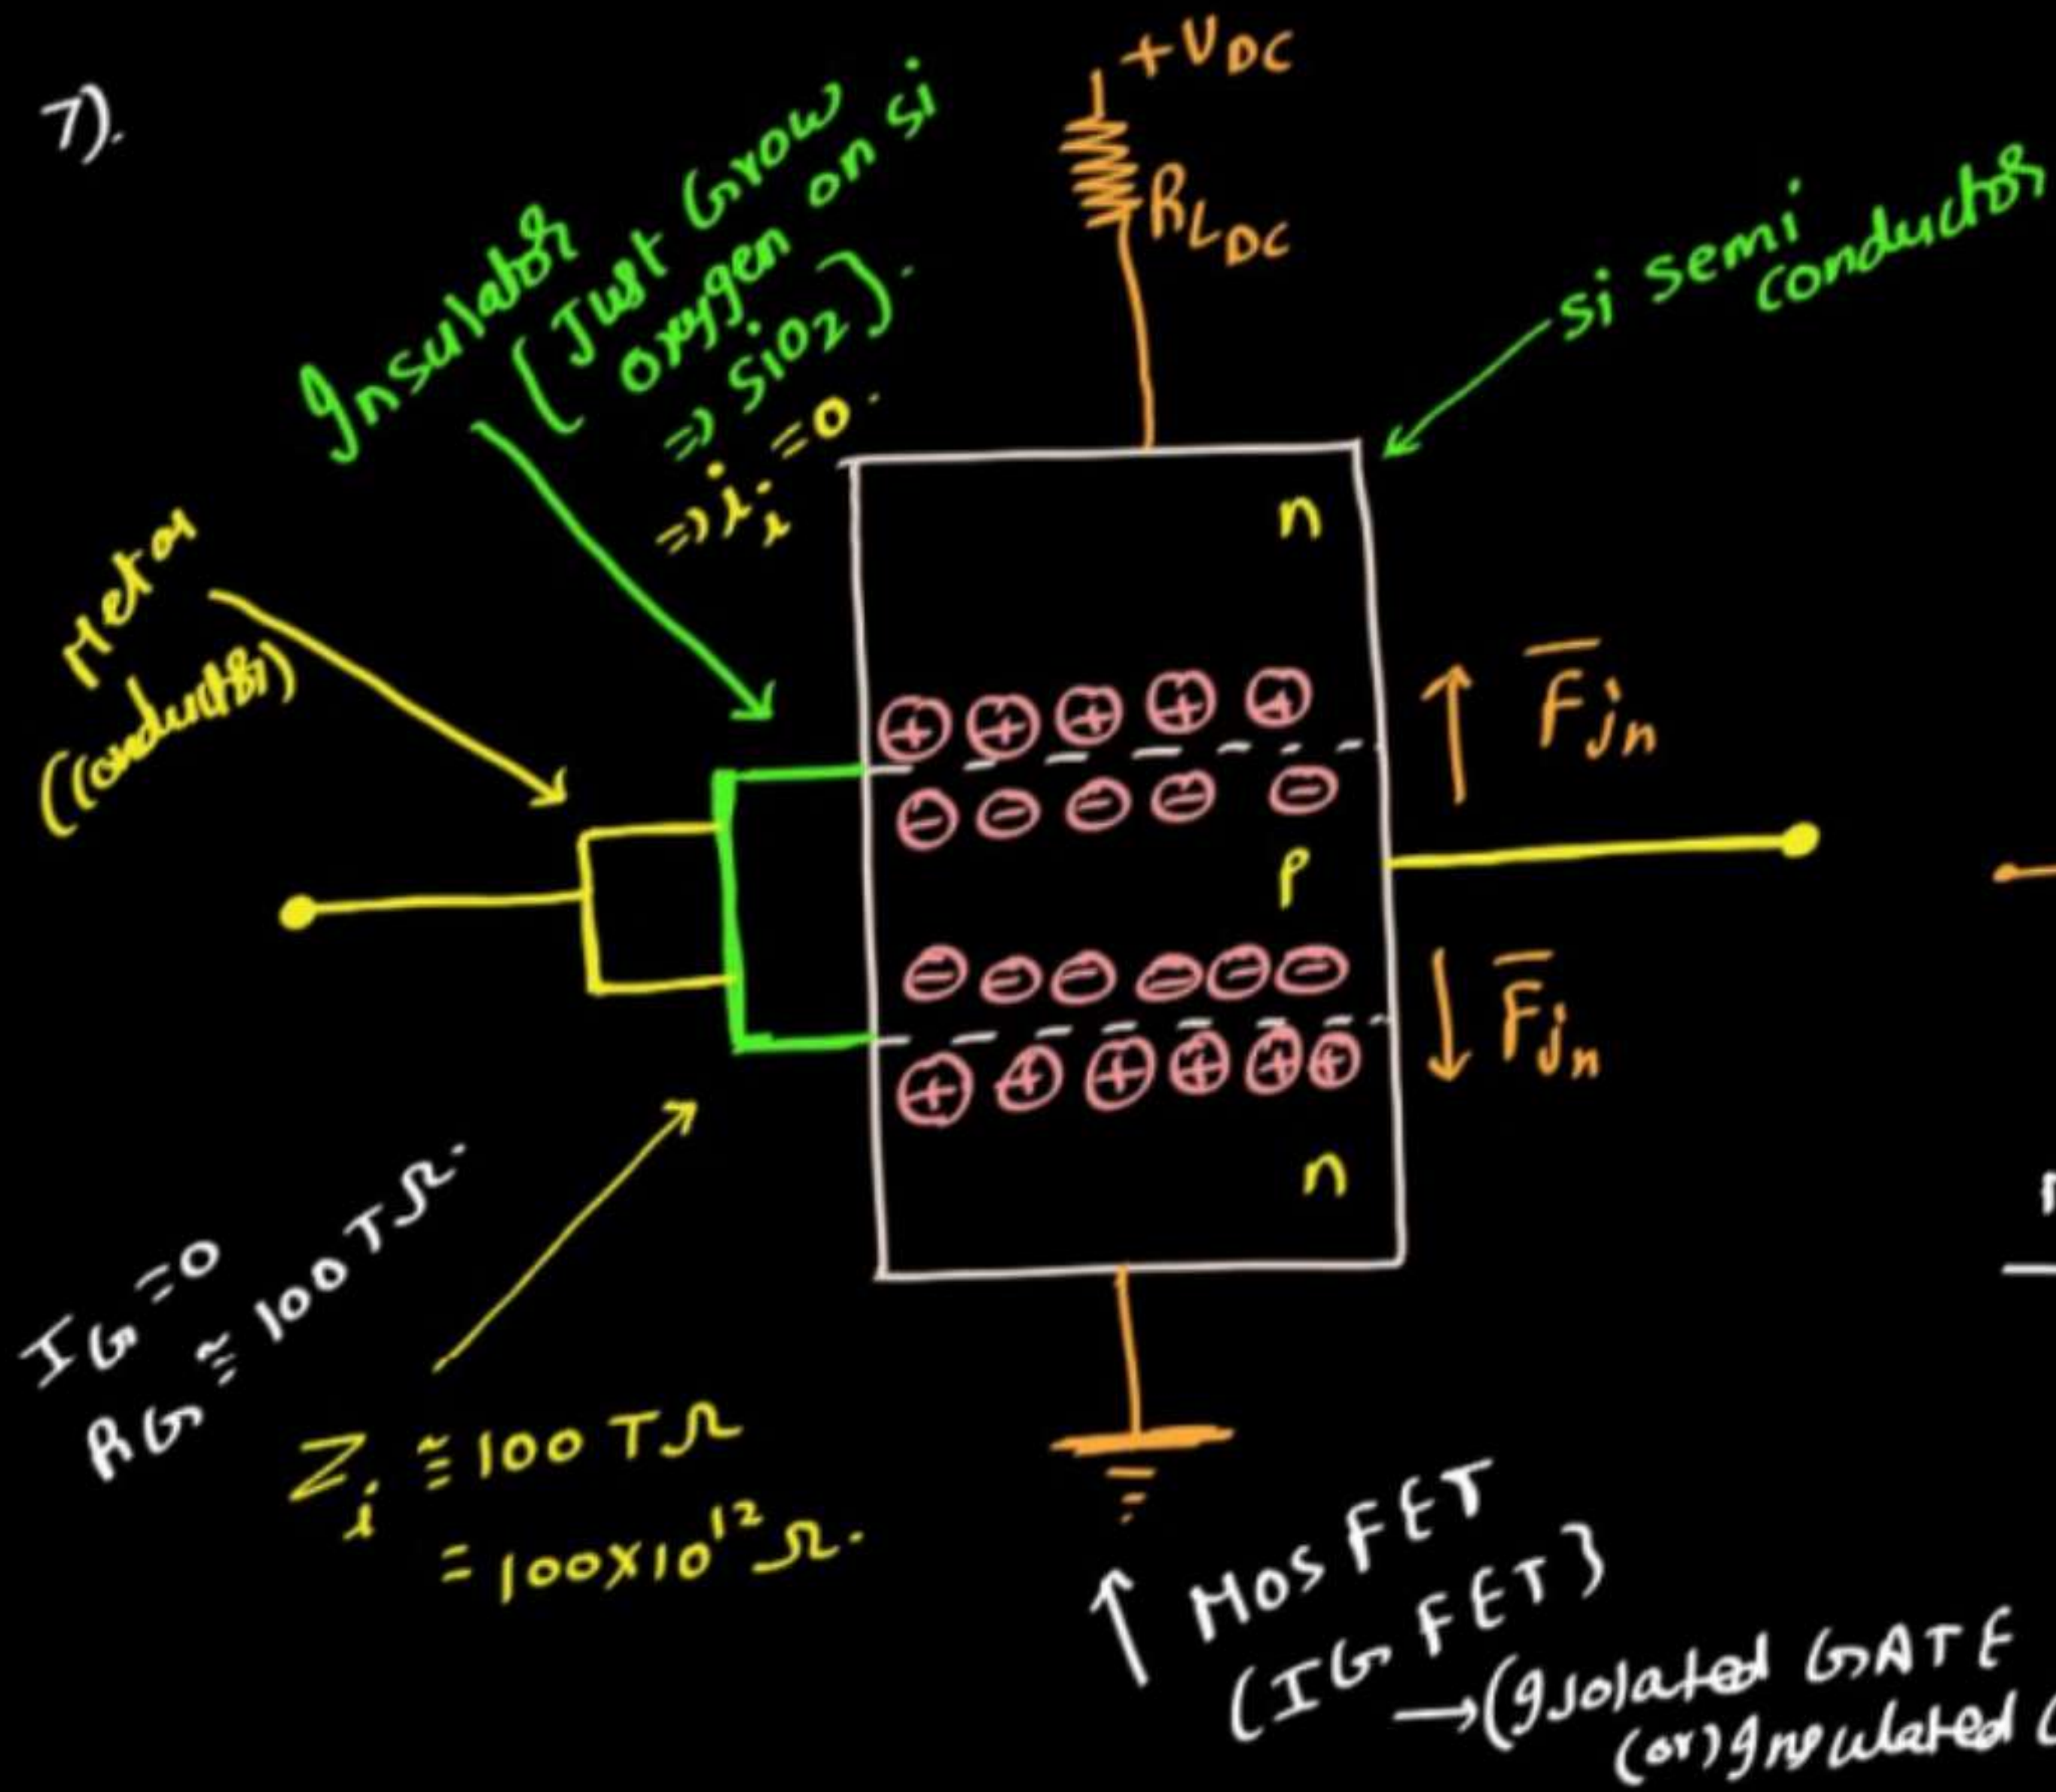 7).
+VDC
RLDC
Insulator
(Just Grow
oxygen on si
=> SiO2).
=> ii = 0.
si semi
conductor
Metal
(conductor)
n
+ + + + +
- - - - -
F̅jn
p
- - - - - -
F̅jn
+ + + + + +
n
IG = 0
RG ≅ 100 TΩ.
Zi ≅ 100 TΩ
= 100X10¹² Ω.
↑ MOSFET
(IG FET}
→(Isolated GATE
(or) Insulated